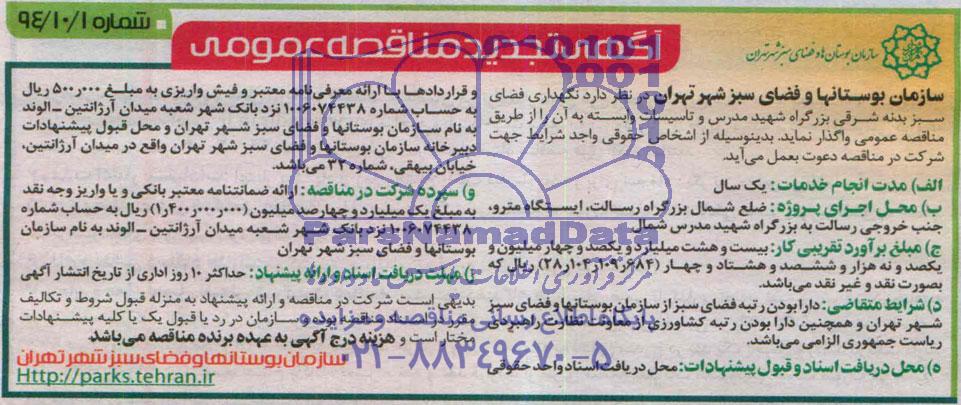 شماره ۹۴/۱۰/۱
آگهی تجدید مناقصه عمومی
سازمان بوستان‌ها و فضای سبز شهر تهران
سازمان بوستانها و فضای سبز شهر تهران در نظر دارد نگهداری فضای
سبز بدنه شرقی بزرگراه شهید مدرس و تاسیسات وابسته به آن را از طریق
مناقصه عمومی واگذار نماید. بدینوسیله از اشخاص حقوقی واجد شرایط جهت
شرکت در مناقصه دعوت بعمل می‌آید.
الف) مدت انجام خدمات: یک سال
ب) محل اجرای پروژه: ضلع شمال بزرگراه رسالت، ایستگاه مترو،
جنب خروجی رسالت به بزرگراه شهید مدرس شمال
ج) مبلغ برآورد تقریبی کار: بیست و هشت میلیارد و یکصد و چهار میلیون و
یکصد و نه هزار و ششصد و هشتاد و چهار (۲۸٫۱۰۴٫۱۰۹٫۶۸۴) ریال که
بصورت نقد و غیر نقد می‌باشد.
د) شرایط متقاضی: دارا بودن رتبه فضای سبز از سازمان بوستانها و فضای سبز
شهر تهران و همچنین دارا بودن رتبه کشاورزی از معاونت نظارت راهبردی
ریاست جمهوری الزامی می‌باشد.
ه) محل دریافت اسناد و قبول پیشنهادات: محل دریافت اسناد واحد حقوقی
و قراردادها با ارائه معرفی نامه معتبر و فیش واریزی به مبلغ ۵۰۰٫۰۰۰ ریال
به حساب شماره ۱۰۰۶۰۷۴۴۳۸ نزد بانک شهر شعبه میدان آرژانتین ـ الوند
به نام سازمان بوستانها و فضای سبز شهر تهران و محل قبول پیشنهادات
دبیرخانه سازمان بوستانها و فضای سبز شهر تهران واقع در میدان آرژانتین،
خیابان بیهقی، شماره ۳۲ می‌باشد.
و) سپرده شرکت در مناقصه: ارائه ضمانتنامه معتبر بانکی و یا واریز وجه نقد
به مبلغ یک میلیارد و چهارصد میلیون (۱٫۴۰۰٫۰۰۰٫۰۰۰) ریال به حساب شماره
۱۰۰۶۰۷۴۴۳۸ نزد بانک شهر شعبه میدان آرژانتین ـ الوند به نام سازمان
بوستانها و فضای سبز شهر تهران
ز) مهلت دریافت اسناد و ارائه پیشنهاد: حداکثر ۱۰ روز اداری از تاریخ انتشار آگهی
بدیهی است شرکت در مناقصه و ارائه پیشنهاد به منزله قبول شروط و تکالیف
مقرر در اسناد مناقصه بوده و سازمان در رد یا قبول یک یا کلیه پیشنهادات
مختار است و هزینه درج آگهی به عهده برنده مناقصه می‌باشد.
سازمان بوستانها و فضای سبز شهر تهران
Http://parks.tehran.ir
ParsNamadData
پایگاه اطلاع رسانی مناقصه و مزایده
۰۲۱-۸۸۳۴۹۶۷۰-۵